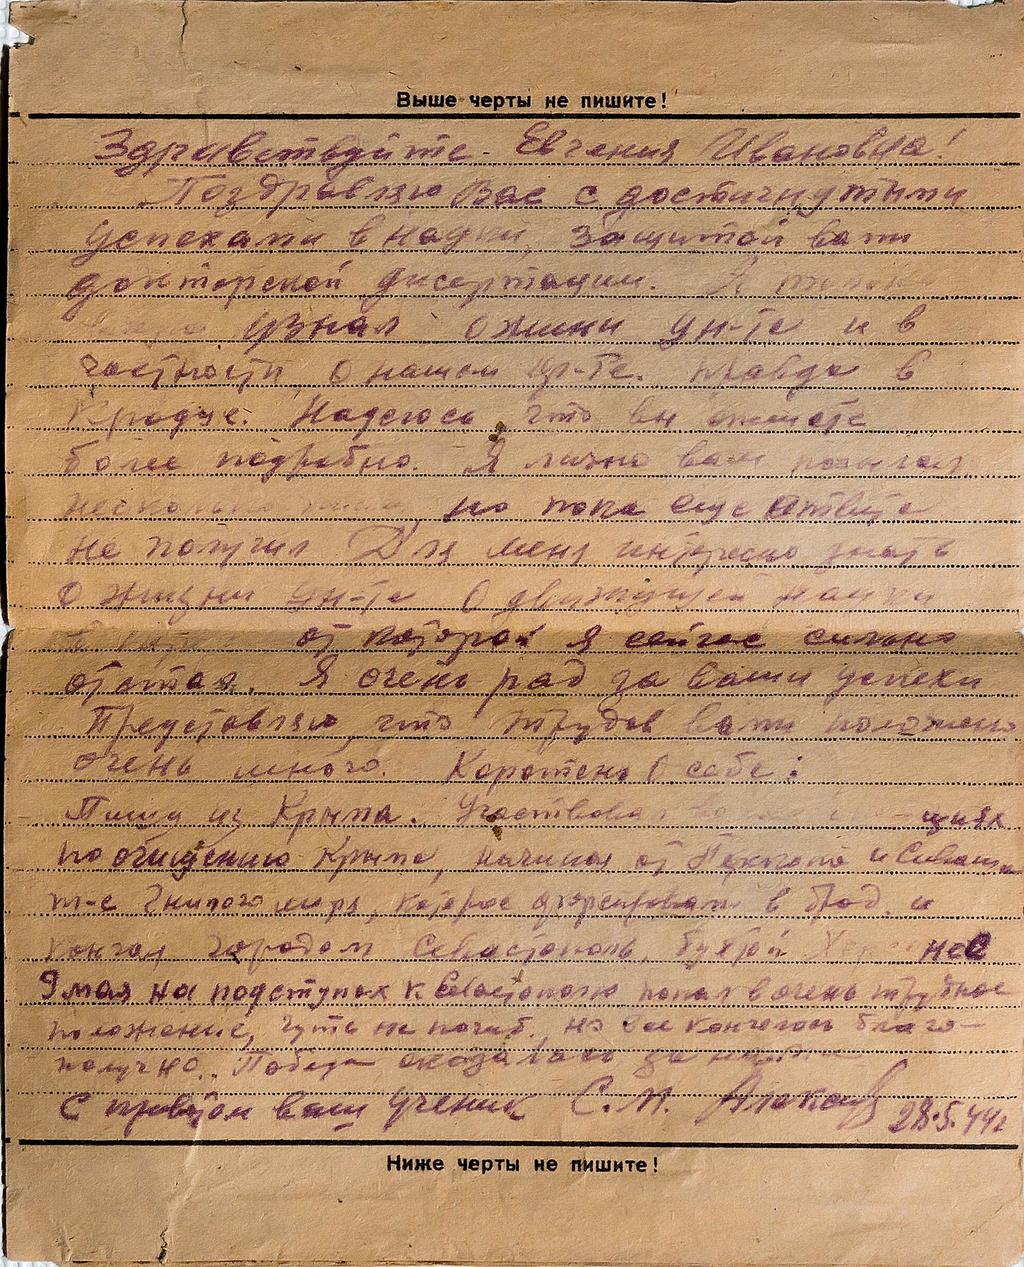 Выше черты не пишите!
Здравствуйте Евгения Ивановна!
Поздравляю Вас с достигнутыми
успехами в науки, защитой вами
докторской дисертации. Я только
узнал о жизни ун-та и в
частности о нашем Правда в
Надеюсь, что вы опишете
более подробно. Я лично вам посылал
несколько но пока еще ответа
не получил Для меня интересно знать
о жизни ун-та О движущей науки
от которой я сейчас сильно
отстал. Я очень рад за ваши успехи
Представляю, что трудов вами положено
очень много. Коротенько о себе:
Пишу из Крыма. Участвовал
по очищению Крыма, начиная от Перекопа и Сиваша
т-е Гнилого моря, которое форсировали в и
кончая городом Севастополь, бухтой
9 мая на подступах к Севастополю попал в очень трудное
положение, чуть не погиб, но все кончилось благо-
получно. Победа оказалась за
С приветом ваш ученик С.М.
28.5.44г
Ниже черты не пишите!